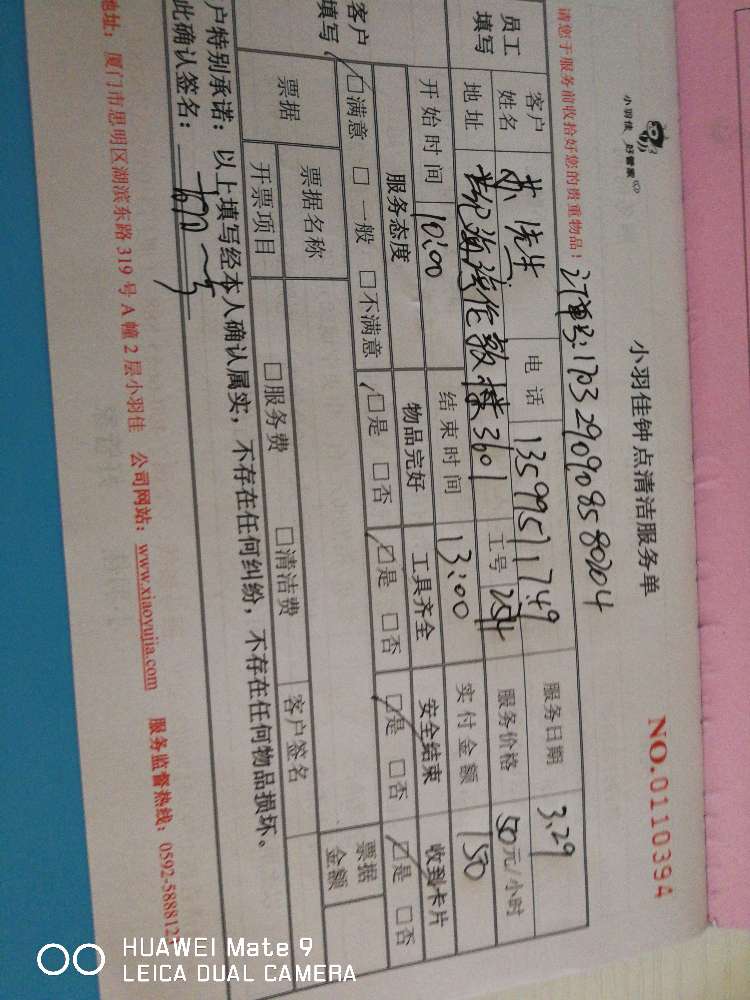 小羽佳 好管家
小羽佳钟点清洁服务单
NO.0110394
请您于服务前收拾好您的贵重物品！
订单号:1703290908580204
员工填写
客户姓名 苏先生 电话 13599511749 服务日期 3.29
地址 世纪海湾伦敦楼3601 工号 254 服务价格 50元/小时
开始时间 10:00 结束时间 13:00 实付金额 150
客户填写
服务态度 物品完好 工具齐全 安全结束 收到卡片
☑满意 □一般 □不满意 ☑是 □否 ☑是 □否 ☑是 □否 ☑是 □否
票据 票据名称 票据金额
开票项目 □服务费 □清洁费 客户签名
户特别承诺：以上填写经本人确认属实，不存在任何纠纷，不存在任何物品损坏。
此确认签名：
地址：厦门市思明区湖滨东路319号A幢2层小羽佳 公司网站：www.xiaoyujia.com 服务监督热线：0592-588812
HUAWEI Mate 9
LEICA DUAL CAMERA